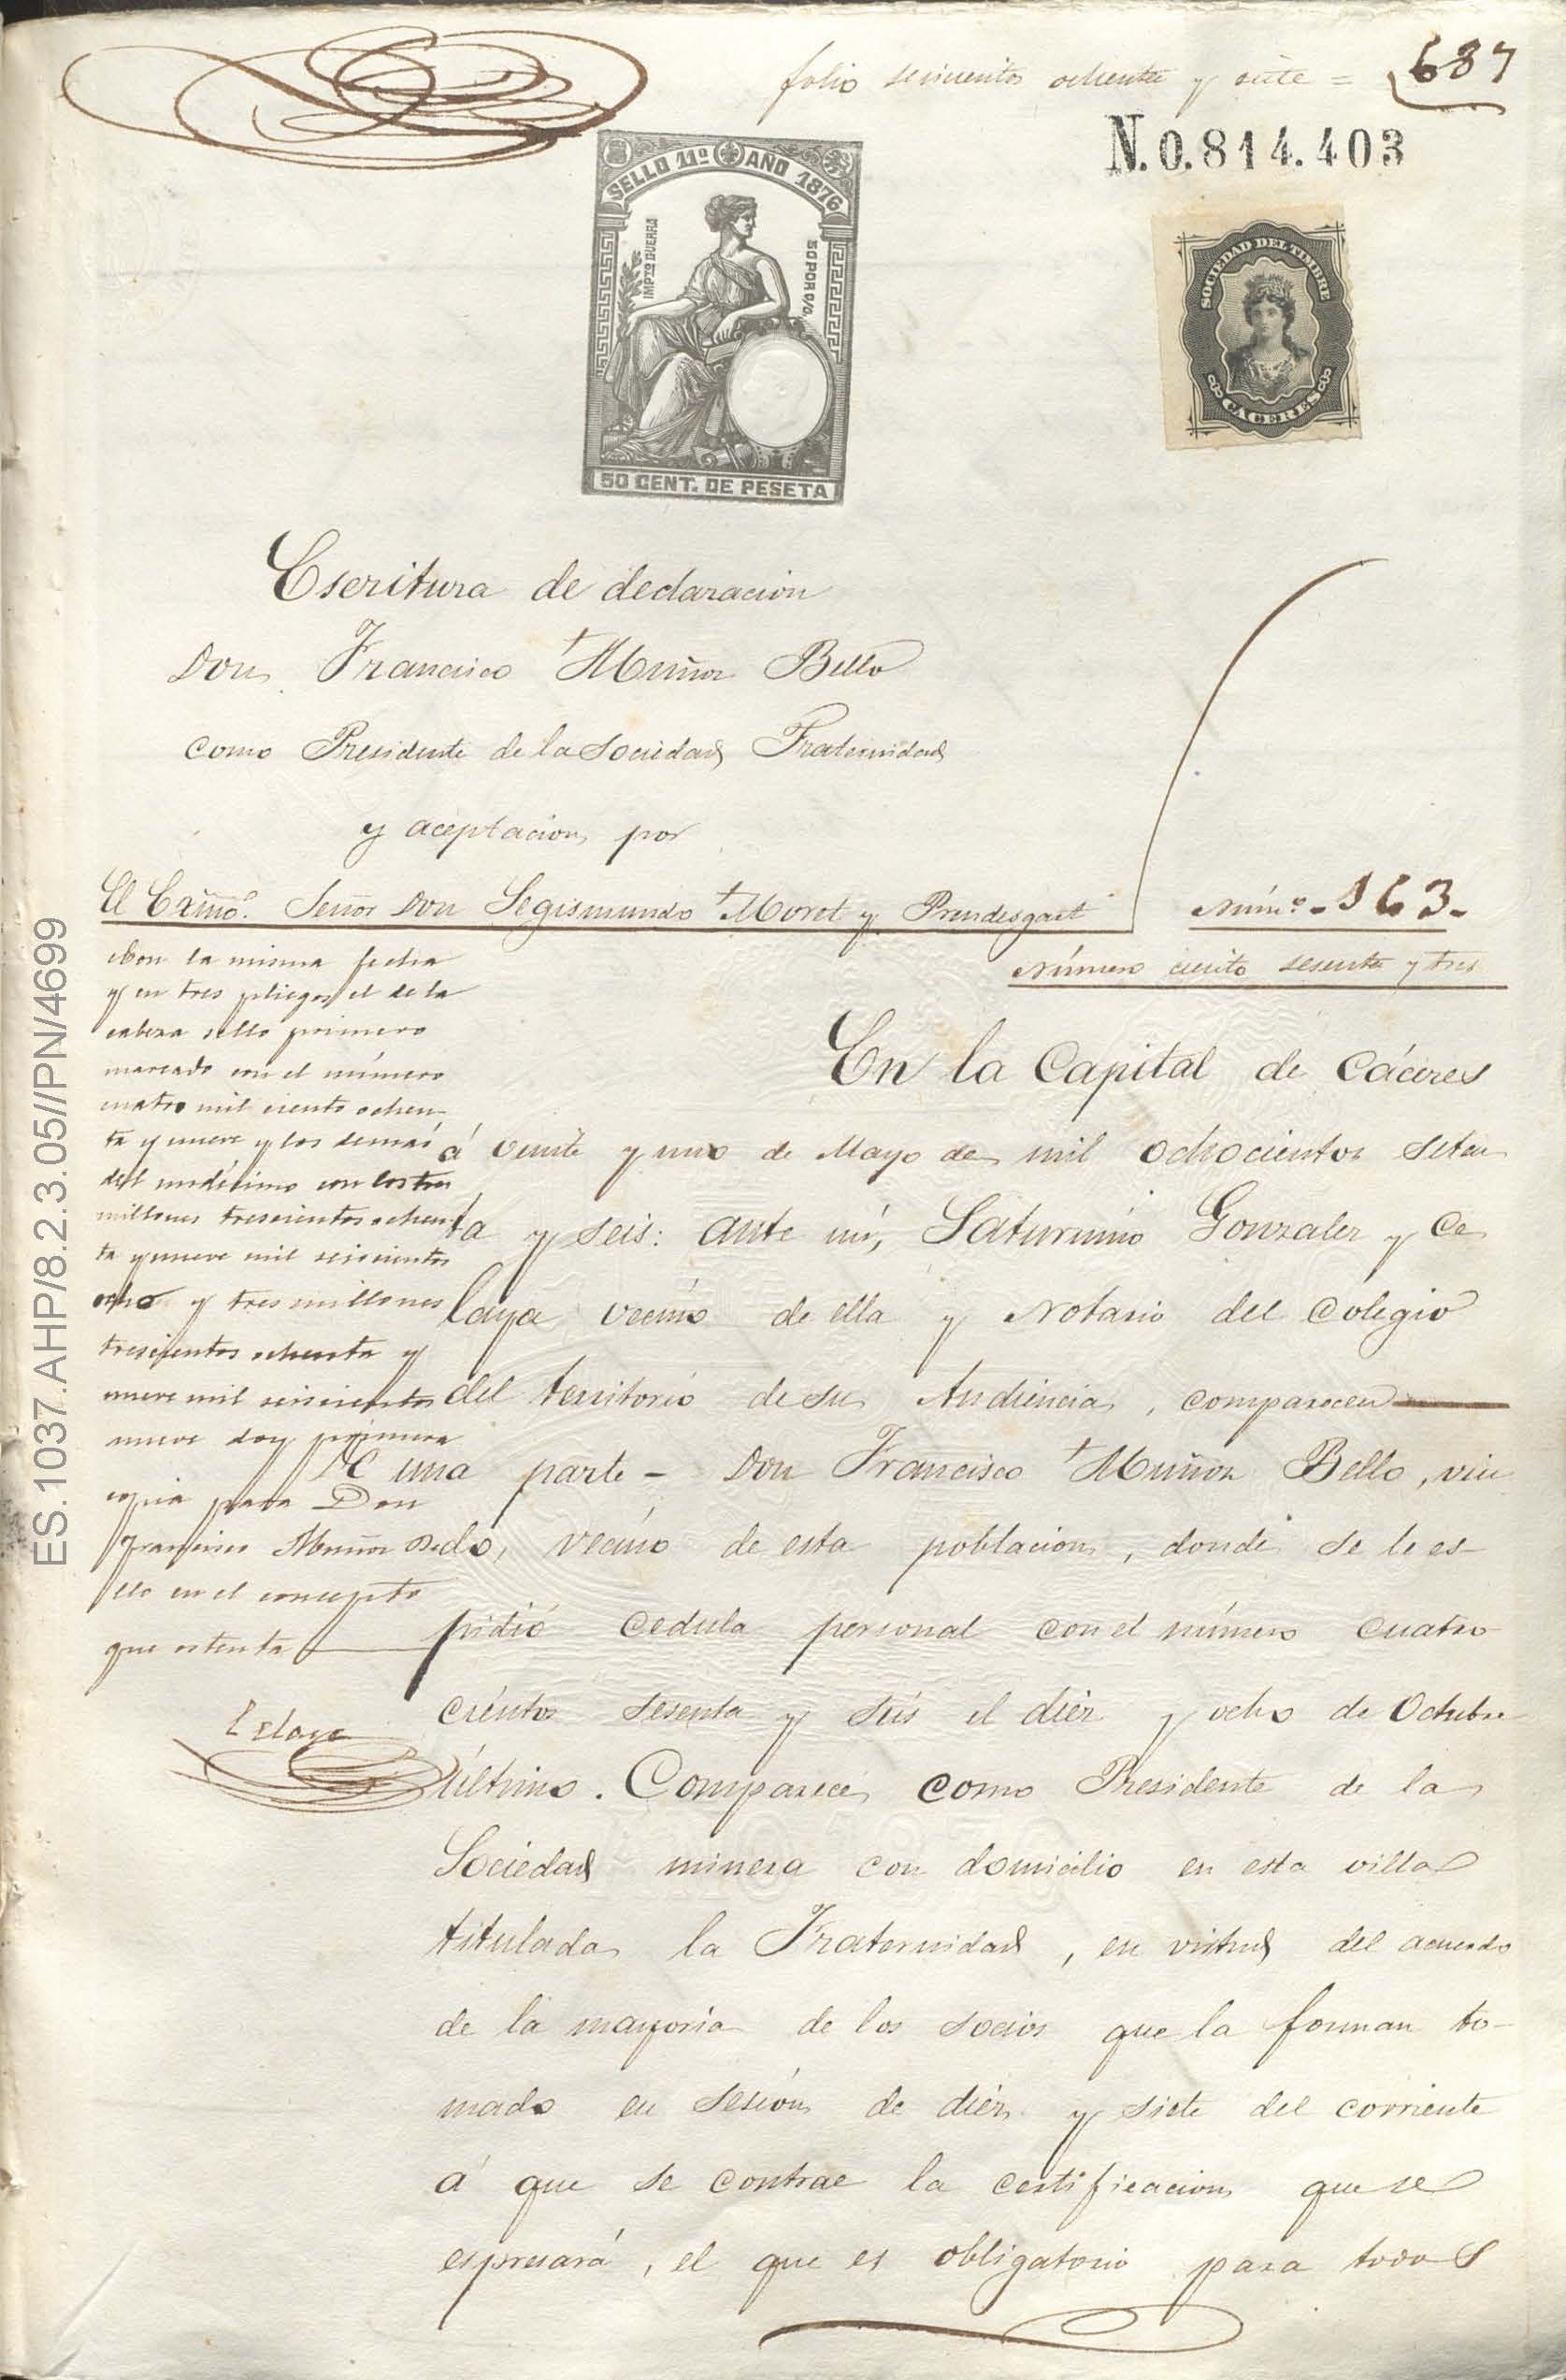 folio seiscientos ochenta y siete = 687
N.0.814.403
SELLO 11º AÑO 1876
IMPTO GUERRA
50 POR 0/0.
50 CENT. DE PESETA
SOCIEDAD DEL TIMBRE
CACERES
Escritura de declaracion
Don Francisco Muñoz Bello
como Presidente de la Sociedad Fraternidad
y aceptacion por
El Exmo. Señor Don Segismundo Moret y Prendesgast
Núm.º - 163 -
Número ciento sesenta y tres
Con la misma fecha
y en tres pliegos el de la
cabeza sello primero
marcado con el número
cuatro mil ciento ochen-
ta y nueve y los demás
del undécimo con los tres
millones trescientos ochen
ta y nueve mil seiscientos
ocho y tres millones
trescientos ochenta y
nueve mil seiscientos
nueve doy primera
copia para Don
Francisco Muñoz Be
llo en el concepto
que ostenta
Celaya
En la Capital de Cáceres
á veinte y uno de Mayo de mil ochocientos seten
ta y seis: ante mí, Saturnino Gonzalez y Ce
laya vecino de ella y Notario del Colegio
del territorio de su Audiencia, comparecen
De una parte - Don Francisco Muñoz Bello, viu
do, vecino de esta poblacion, donde se le es-
pidió cedula personal con el número cuatro
cientos sesenta y seis el diez y ocho de Octubre
último. Comparece como Presidente de la
Sociedad minera con domicilio en esta villa
titulada la Fraternidad, en virtud del acuerdo
de la mayoría de los socios que la forman to-
mado en sesión de diez y siete del corriente
á que se contrae la certificacion que se
espresará, el que es obligatorio para todos
ES.1037.AHP/8.2.3.05//PN/4699